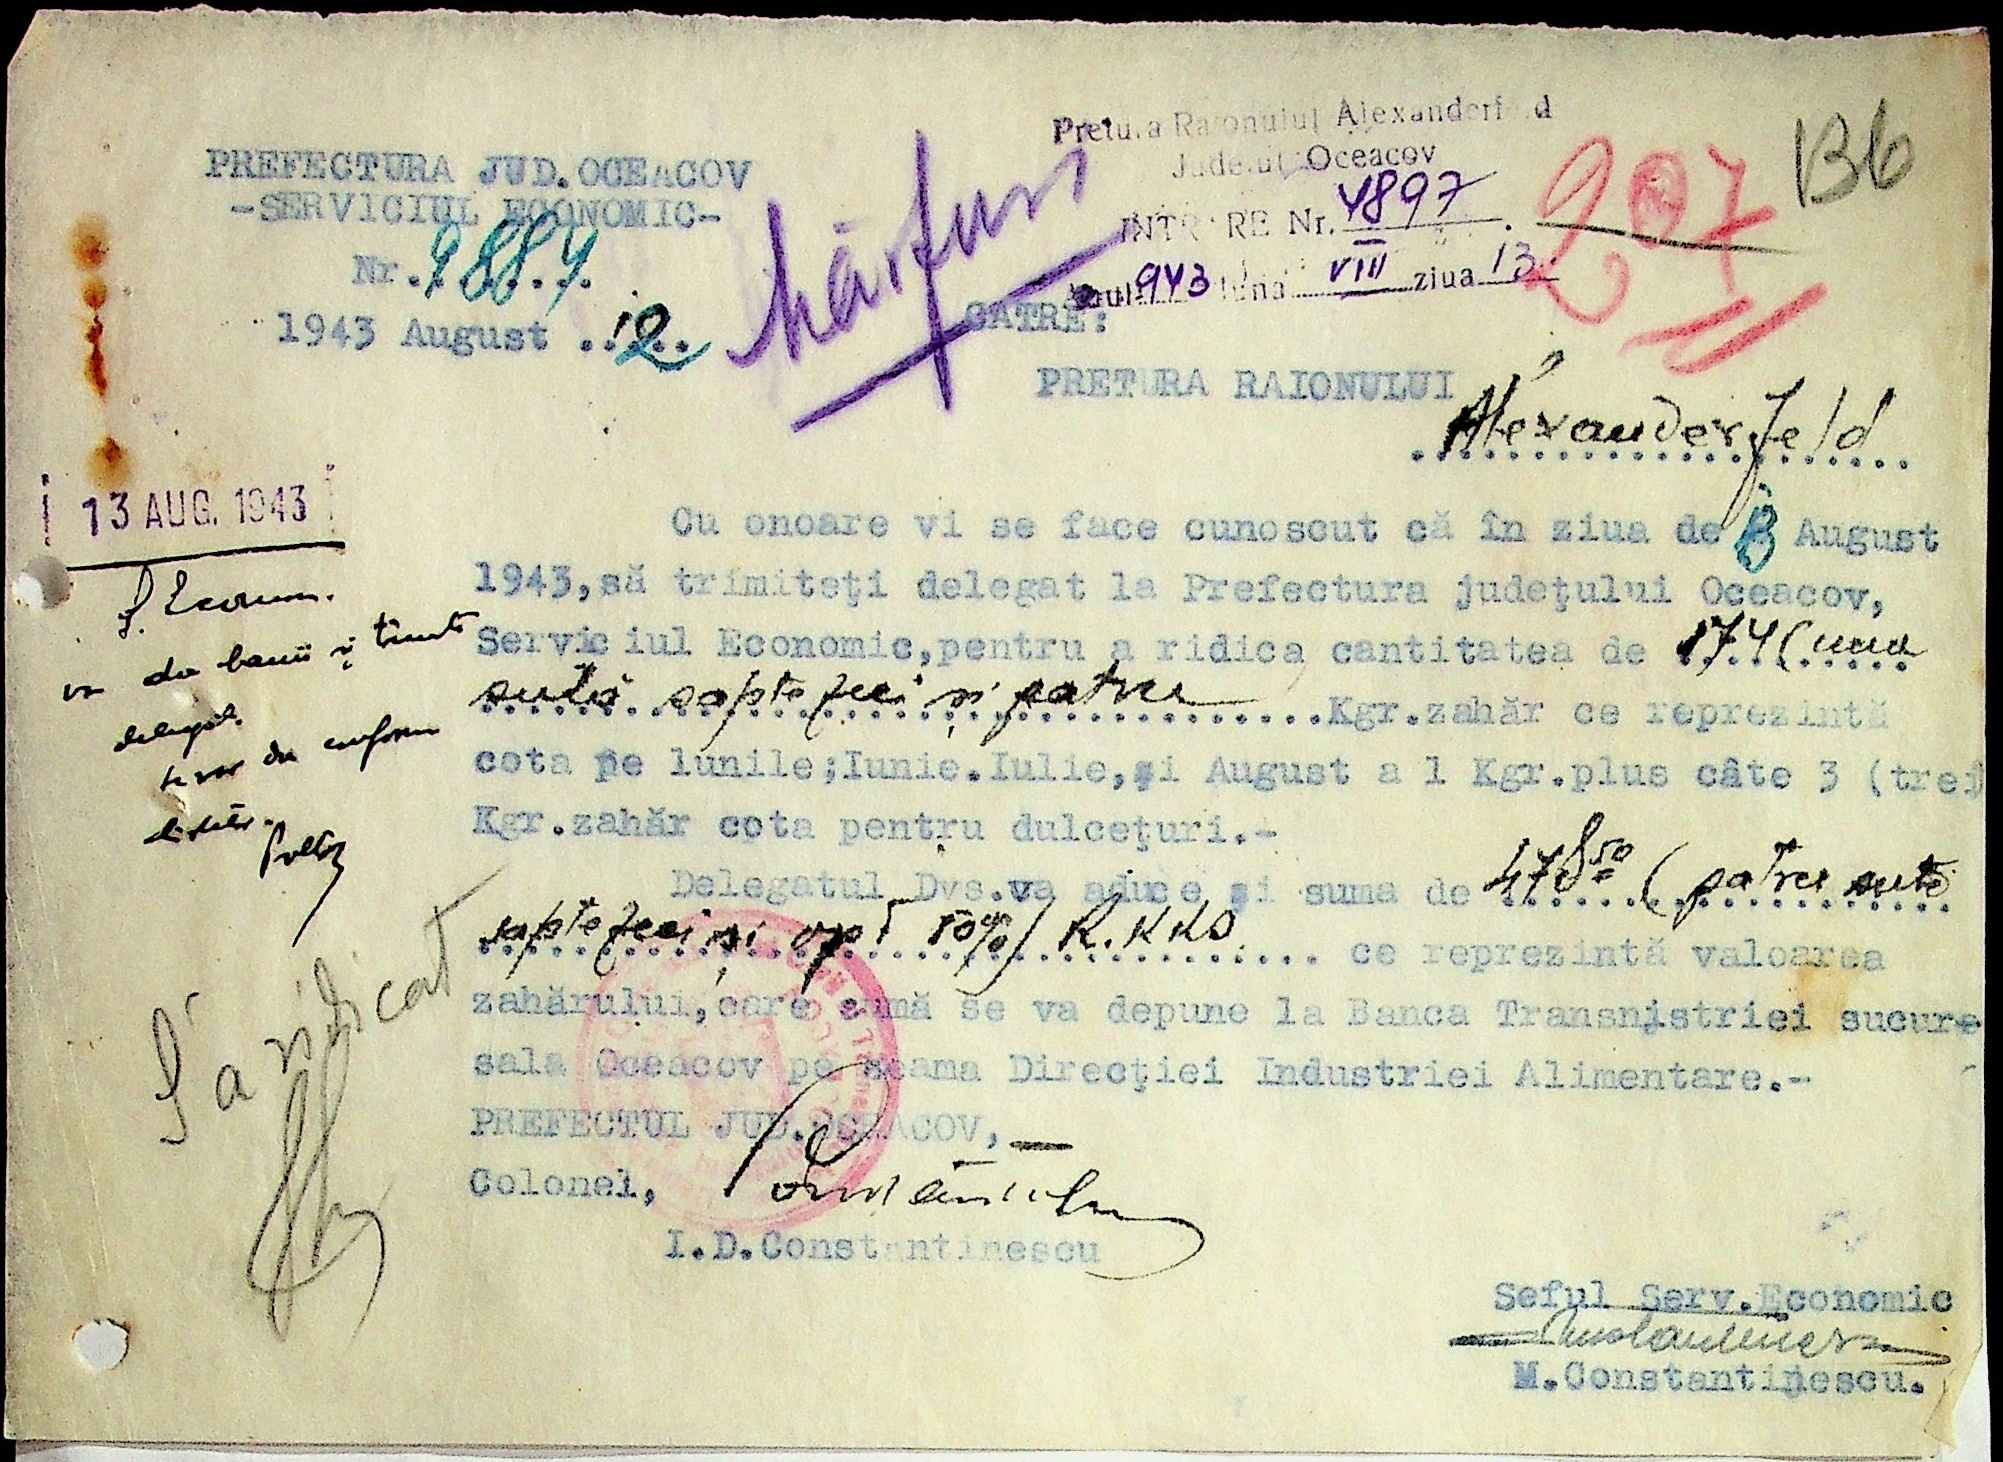 Pretura Raionului Alexanderfeld
Județul Oceacov
INTRARE Nr. 4897
Anul 943 luna VIII ziua 13
207
136
PREFECTURA JUD.OCEACOV
-SERVICIUL ECONOMIC-
Nr. 9884
1943 August 12
CATRE:
PRETURA RAIONULUI
Alexanderfeld
13 AUG. 1943
S. Econom.
va da banii și trimite
delegat.
Cu onoare vi se face cunoscut că în ziua de August
1943,să trimiteți delegat la Prefectura județului Oceacov,
Serviciul Economic,pentru a ridica cantitatea de 174 (una
sută șaptezeci și patru Kgr.zahăr ce reprezintă
cota pe lunile;Iunie.Iulie,și August a 1 Kgr.plus câte 3 (trei)
Kgr.zahăr cota pentru dulcețuri.-
Delegatul Dvs.va aduce și suma de 478 50 (patru sute
șaptezeci și opt 50%) R.KKS. ce reprezintă valoarea
zahărului,care sumă se va depune la Banca Transnistriei sucur-
sala Oceacov pe seama Direcției Industriei Alimentare.-
S'a ridicat
PREFECTUL JUD.OCEACOV,
Colonel,
I.D.Constantinescu
Seful Serv.Economic
M.Constantinescu.